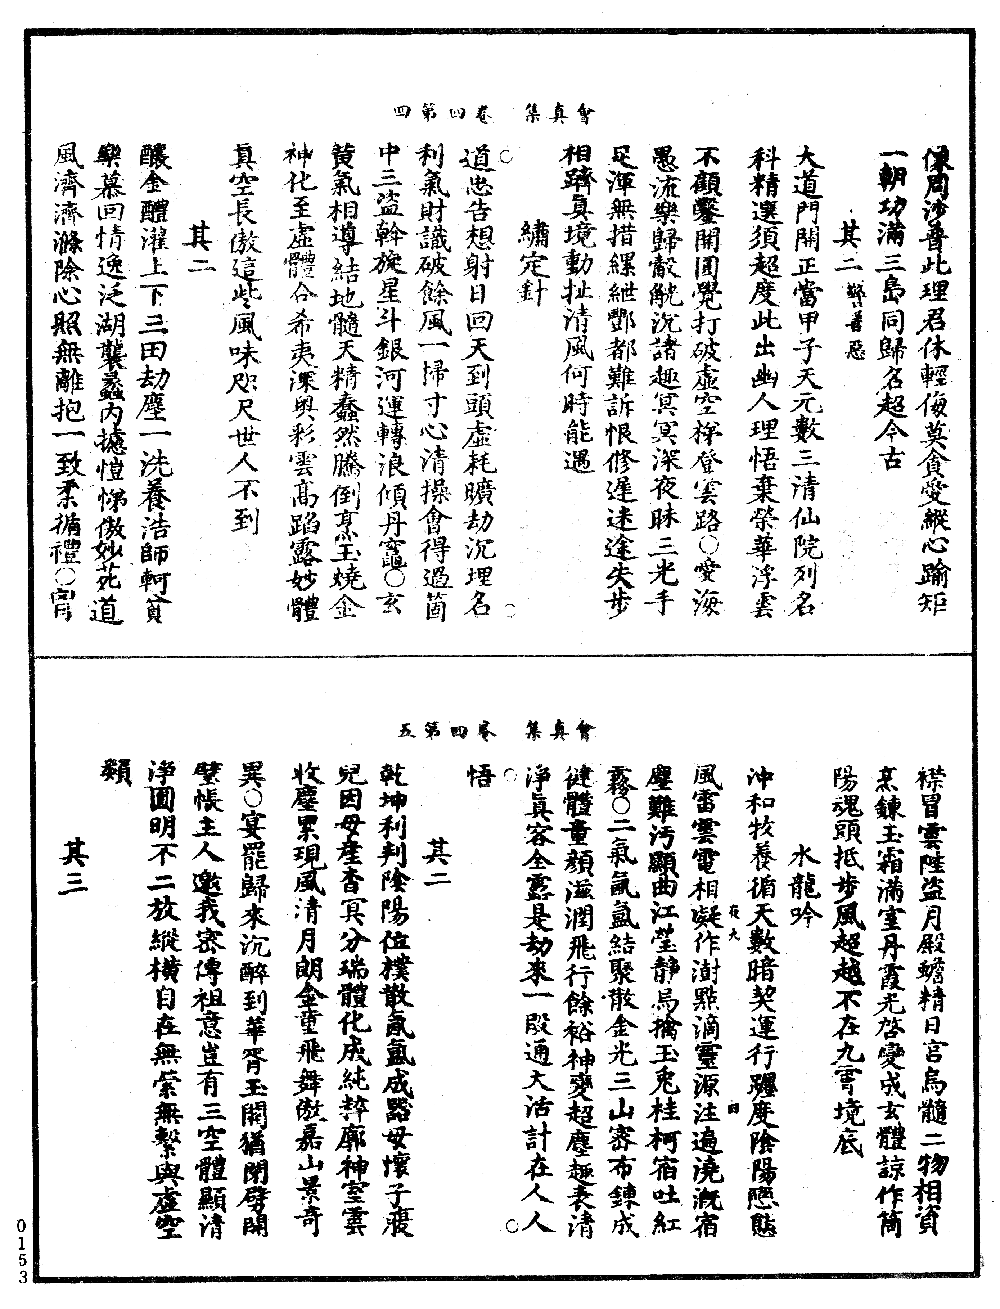 會真集　卷四第四
傑周沙普此理君休輕侮莫貪愛縱心踰矩
一朝功滿三島同歸名超今古
其二 警善惡
大道門開正當甲子天元數三清仙院列名
科精選須超度此出幽人理悟棄榮華浮雲
不顧鑿開圓覺打破虛空梯登雲路○愛海
愚流樂歸觳觫沉諸趣冥冥深夜昧三光手
足渾無措縲紲酆都難訴恨修遲迷途失步
相躋真境動扯清風何時能遇
繡定針
道忠告想射日回天到頭虛耗曠劫沉埋名
利氣財識破餘風一掃寸心清操會得過箇
中三盜斡旋星斗銀河運轉浪傾丹竈○玄
黃氣相導結地髓天精蠢然騰倒烹玉燒金
神化至虛體合希夷深奧彩雲高蹈露妙體
真空長傲這些風味咫尺世人不到
其二
釀金醴濯上下三田劫塵一洗養浩師軻貧
樂慕回情逸泛湖襲蠡內攄愷悌傲妙苑道
風濟濟滌除心照無離抱一致柔循禮○宵
會真集　卷四第五
襟冒雲陸盜月殿蟾精日宮烏髓二物相資
烹鍊玉霜滿室丹霞光啓變成玄體諒作箇
陽魂頭抵步風超越不在九霄境底
水龍吟
沖和牧養循天數暗契運行躔度陰陽戀態
風雷雲電相凝作澍點滴靈源注遍澆溉宿
塵難汚顯曲江瑩靜烏擒玉兔桂柯宿吐紅
霧○二氣氤氳結聚散金光三山密布鍊成
健體童顏滋潤飛行餘裕神變超塵趣表清
淨真容全露是劫來一段通天活計在人人
悟
其二
乾坤利判陰陽位樸散氤氳成器母懷子寢
兒因母產杳冥分瑞體化成純粹廓神室雲
收塵累現風清月朗金童飛舞傲嘉山景奇
異○宴罷歸來沉醉到華胥玉關猶閉劈開
壁帳主人邀我密傳祖意豈有三空體顯清
淨圓明不二放縱橫自在無縈無繫與虛空
類
其三
0153